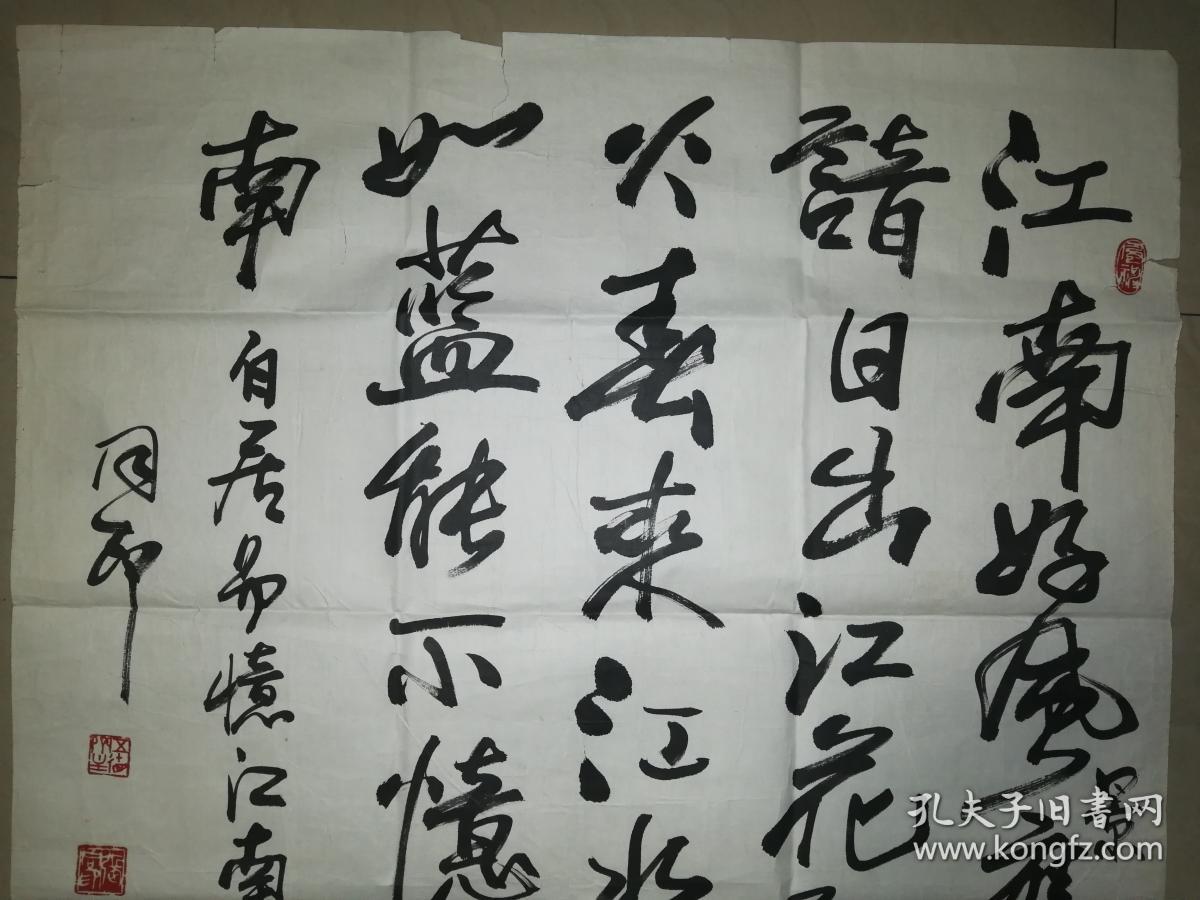 江南好風
景
諳日出江花
火春来江水
如蓝能不憶
南 白居易憶江南
同印
孔夫子旧書网
www.kongfz.com